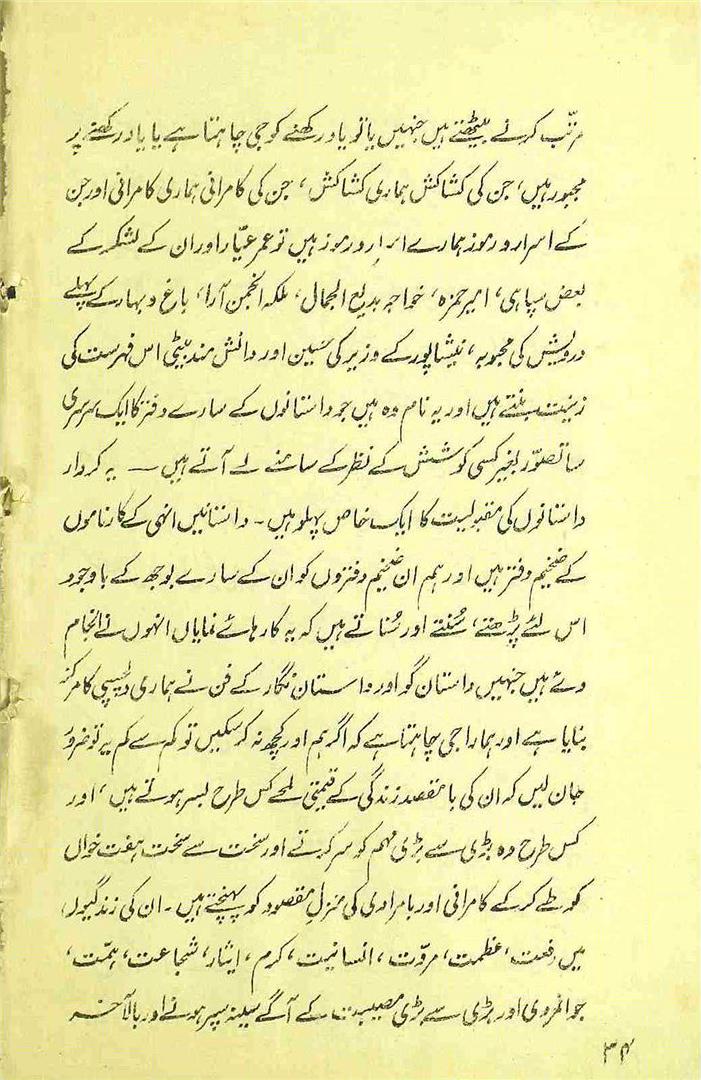 مرتّب کرنے بیٹھتے ہیں جنہیں یا تو یاد رکھنے کو جی چاہتا ہے یا یاد رکھنے پر
مجبور ہیں، جن کی کشاکش ہماری کشاکش، جن کی کامرانی ہماری کامرانی اور جن
کے اسرار و رموز ہمارے اسرار و رموز ہیں تو عمر عیّار اور ان کے لشکر کے
بعض سپاہی، امیر حمزہ، خواجہ بدیع الجمال، ملکہ انجمن آرا، باغ و بہار کے پہلے
درویش کی محبوبہ، نیشاپور کے وزیر کی حسین اور دانش مند بیٹی اس فہرست کی
زینت بنتے ہیں اور یہ نام وہ ہیں جو داستانوں کے سارے دفتر کا ایک سرسری
سا تصوّر بغیر کسی کوشش کے نظر کے سامنے لے آتے ہیں — یہ کردار
داستانوں کی مقبولیت کا ایک خاص پہلو ہیں۔ داستانیں انہی کے کارناموں
کے ضخیم دفتر ہیں اور ہم ان ضخیم دفتروں کو ان کے سارے بوجھ کے باوجود
اس لئے پڑھتے، سُنتے اور سُناتے ہیں کہ یہ کارہائے نمایاں انہوں نے انجام
دئے ہیں جنہیں داستان گو اور داستان نگار کے فن نے ہماری دلچسپی کا مرکز
بنایا ہے اور ہمارا جی چاہتا ہے کہ اگر ہم اور کچھ نہ کر سکیں تو کم سے کم یہ تو ضرور
جان لیں کہ ان کی با مقصد زندگی کے قیمتی لمحے کس طرح بسر ہوتے ہیں، اور
کس طرح وہ بڑی سے بڑی مہم کو سر کرتے اور سخت سے سخت ہفت خواں
کو طے کر کے کامرانی اور بامرادی کی منزلِ مقصود کو پہنچتے ہیں۔ ان کی زندگیوں
میں رفعت، عظمت، مروّت، انسانیت، کرم، ایثار، شجاعت، ہمّت،
جوانمردی اور بڑی سے بڑی مصیبت کے آگے سینہ سپر ہونے اور بالآخر
۳۴